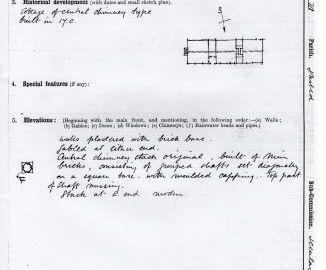 3. Historical development (with dates and small sketch plan).
of central chimney type
built in 17.C.
4. Special features (if any):
5. Elevations: (Beginning with the main front, and mentioning, in the following order:—(a) Walls;
(b) Gables; (c) Doors; (d) Windows; (e) Chimneys; (f) Rainwater heads and pipes.)
walls plastered with brick base.
Gabled at either end.
Central chimney stack original, built of
bricks, consisting of grouped shafts set diagonally
on a square base. with moulded capping. Top part
of shaft missing.
Stack at E end modern.
Parish.
Sub-Commission.